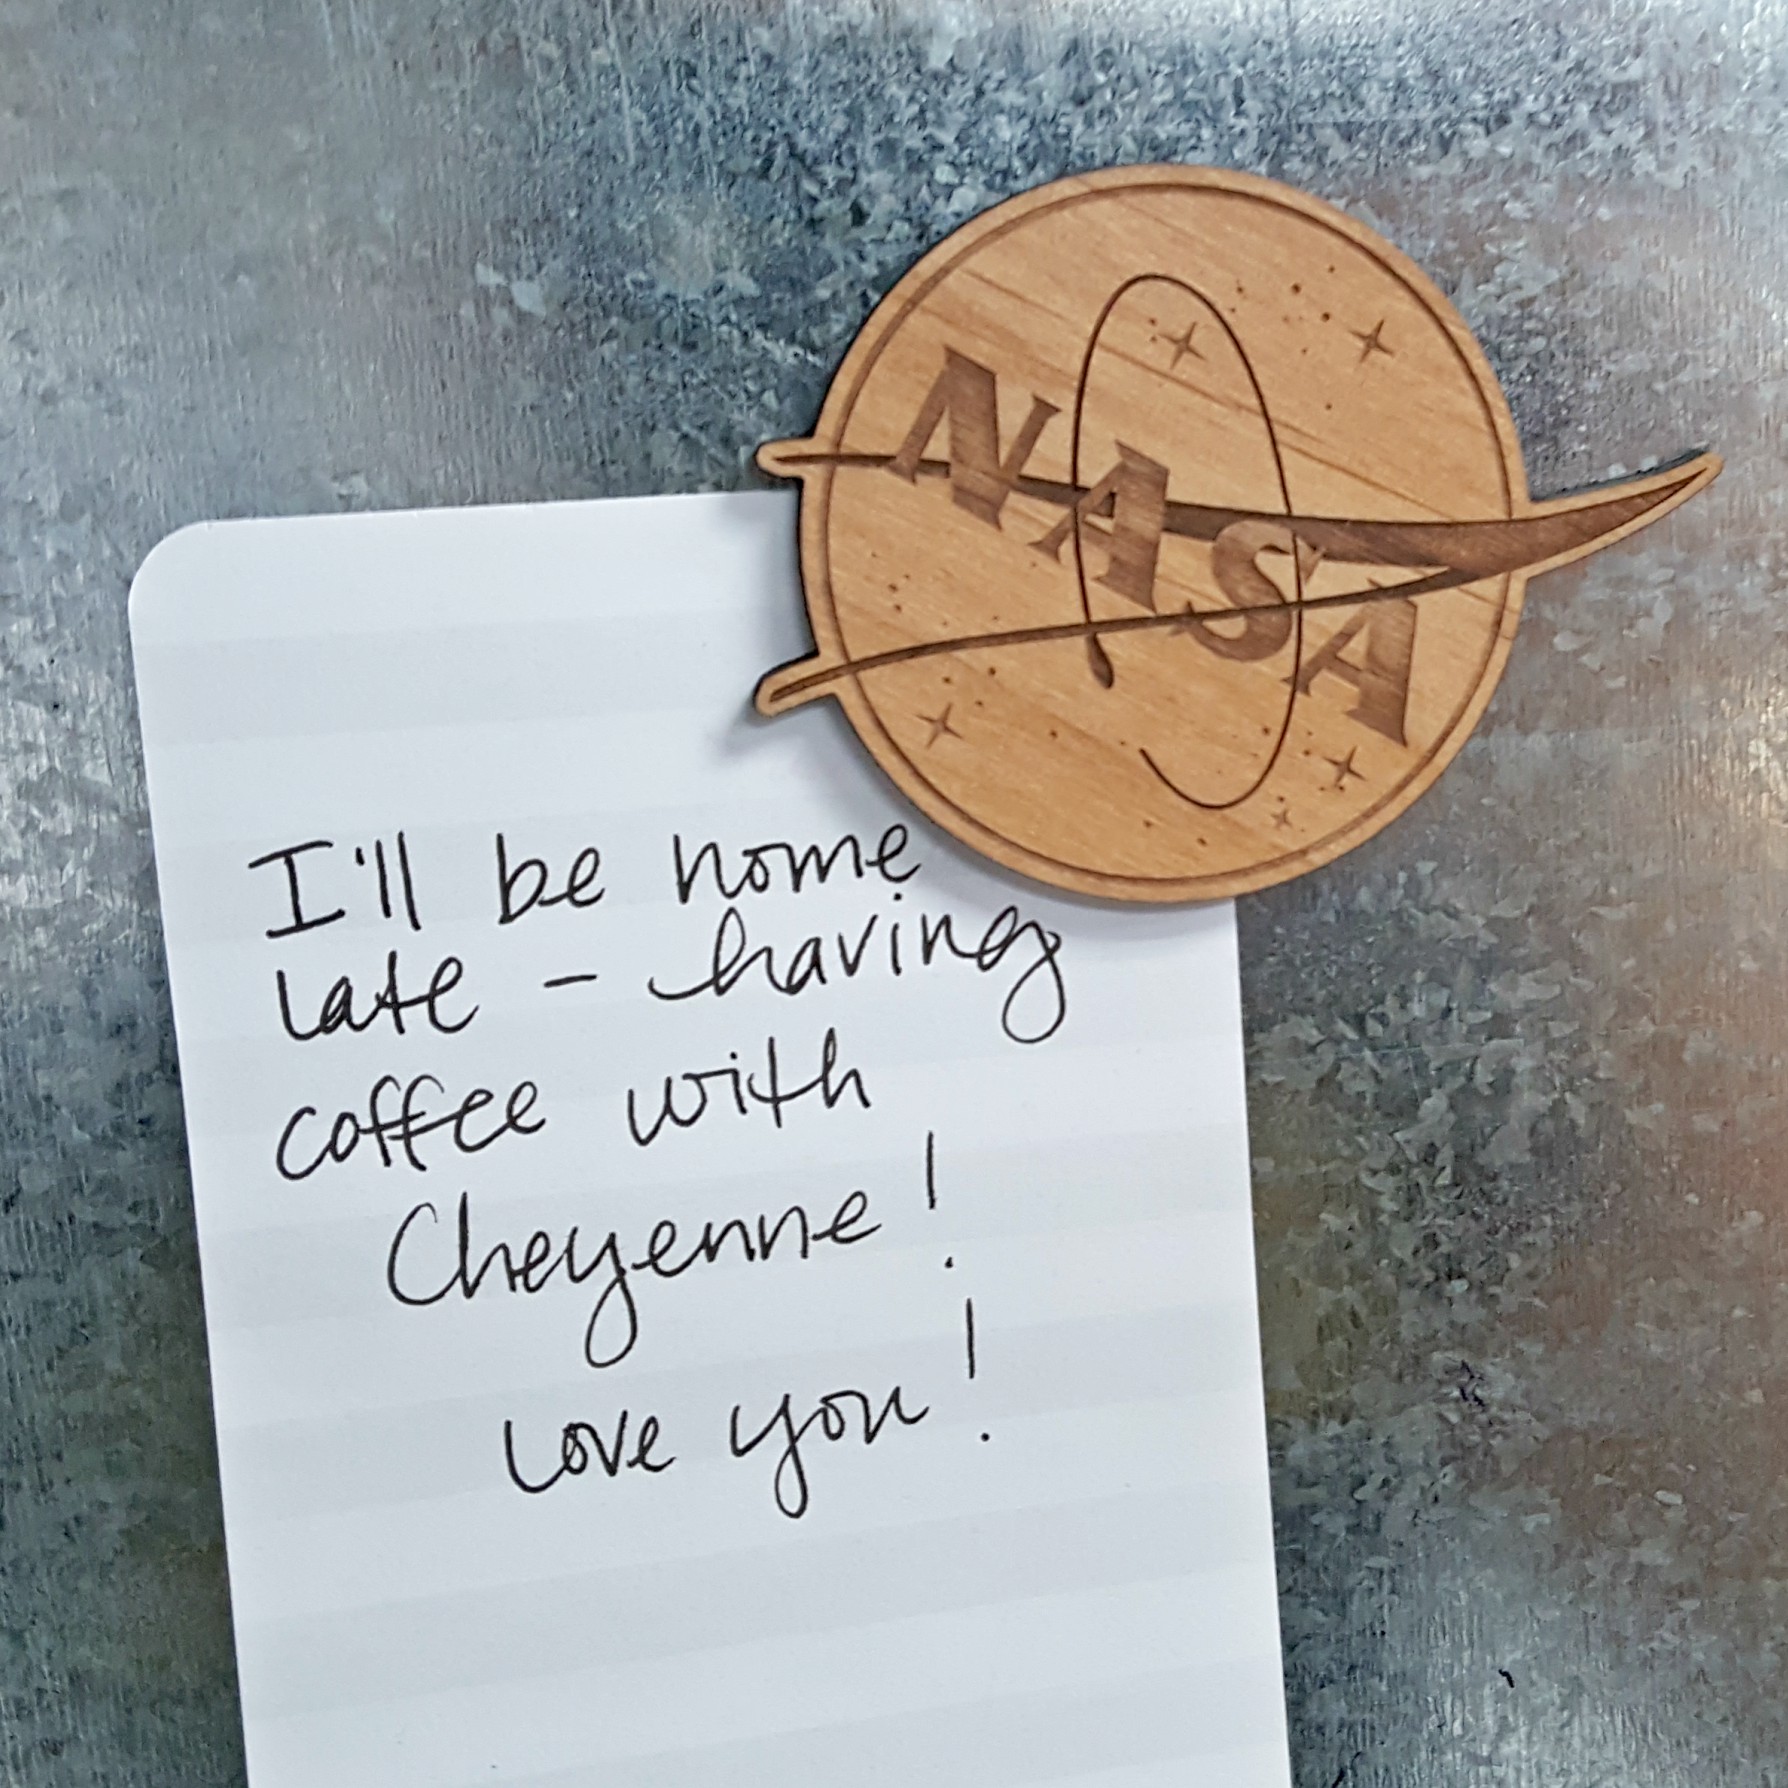 NASA
I'll be home
late - having
coffee with
Cheyenne!
love you!